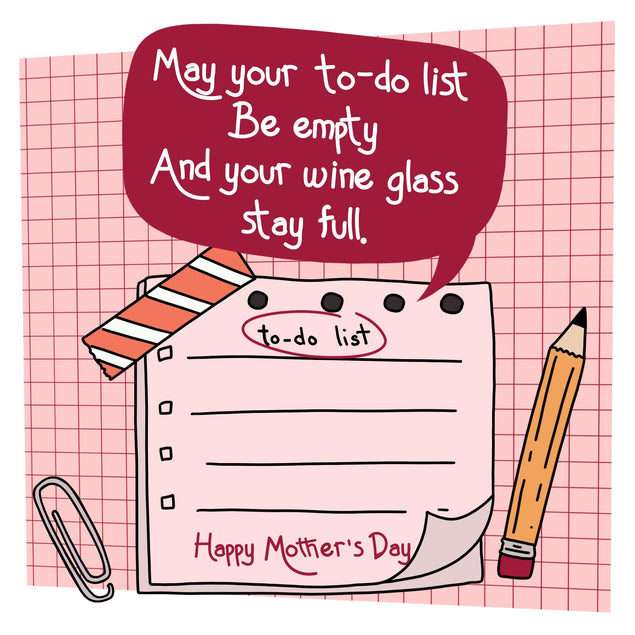 May your to-do list
Be empty
And your wine glass
stay full.
to-do list
Happy Mother's Day